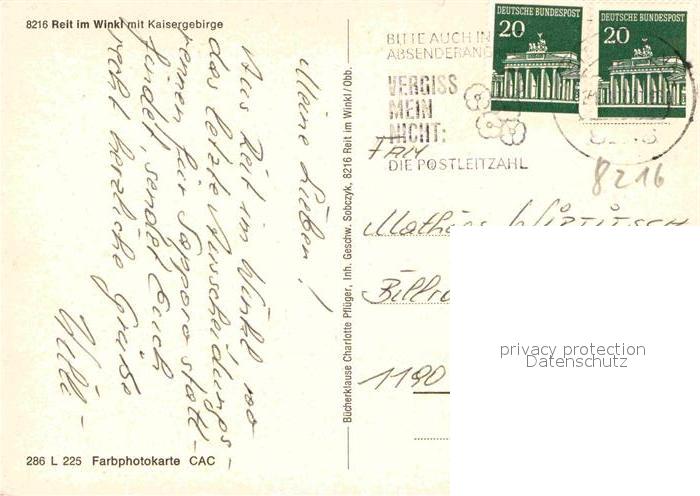 8216 Reit im Winkl mit Kaisergebirge
Meine Lieben!
Aus Reit im Winkl, wo
das letzte Ausscheidungs-
rennen für Sapporo statt-
findet sendet Euch
recht herzliche Grüße
Willi -
286 L 225 Farbphotokarte CAC
Bücherklause Charlotte Pflüger, Inh. Geschw. Sobczyk, 8216 Reit im Winkl/Obb.
BITTE AUCH IN
ABSENDERANG
VERGISS
MEIN
NICHT:
DIE POSTLEITZAHL
DEUTSCHE BUNDESPOST
20
DEUTSCHE BUNDESPOST
20
8216
8216
FAM
Mathias
Billro
1190
privacy protection
Datenschutz